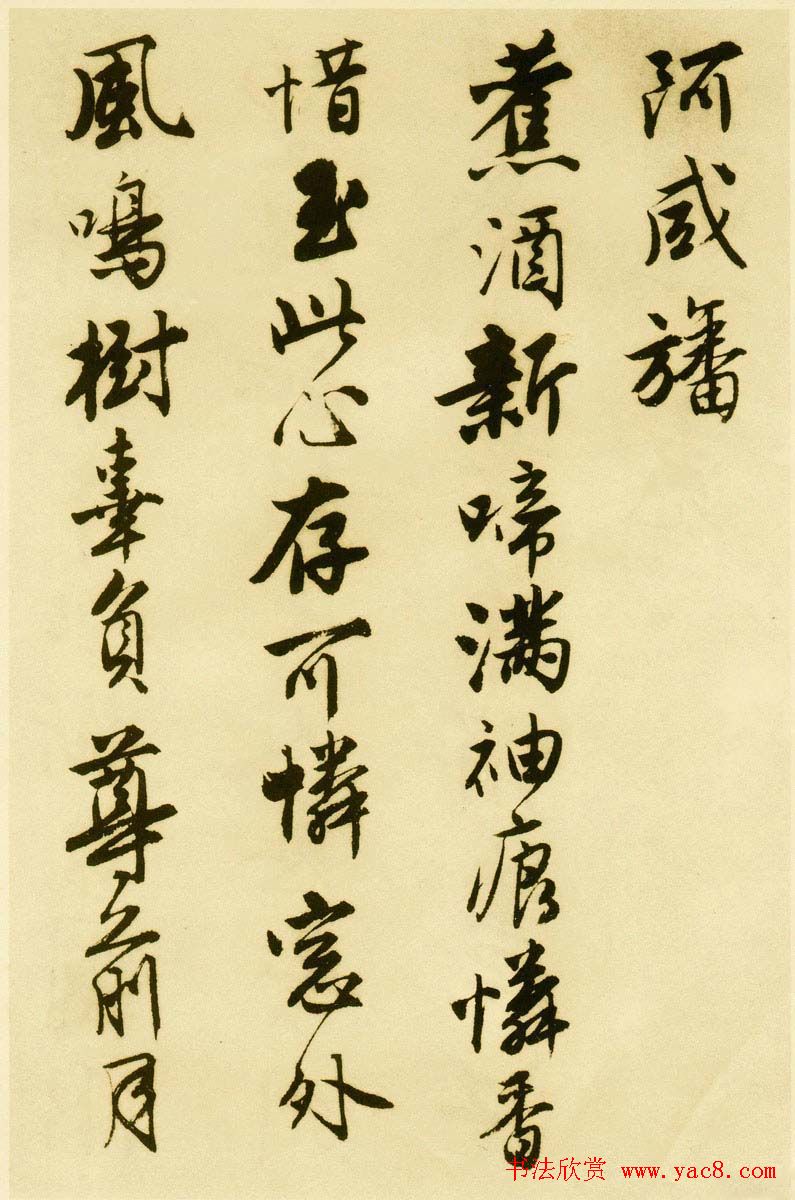 阿咸旛
蕉酒新啼满袖痕憐香
惜玉此心存可憐窓外
風鳴樹辜負尊前月
书法欣赏 www.yac8.com